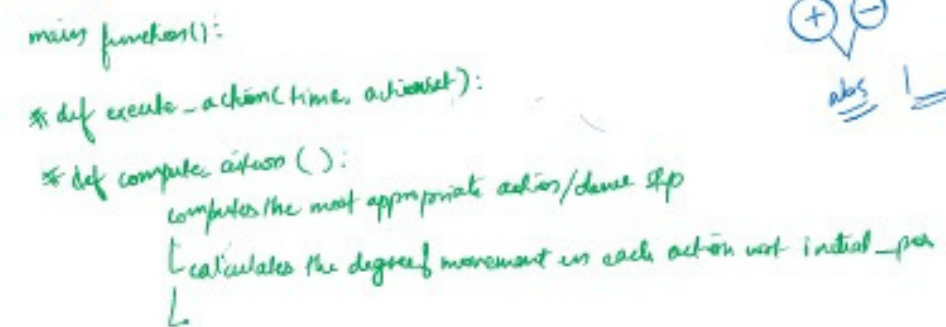 main function():
* def execute_action(time, actionset):
* def compute action():
computes the most appropriate action/dance step
calculates the degree of movement in each action wrt initial_pos
+ -
abs